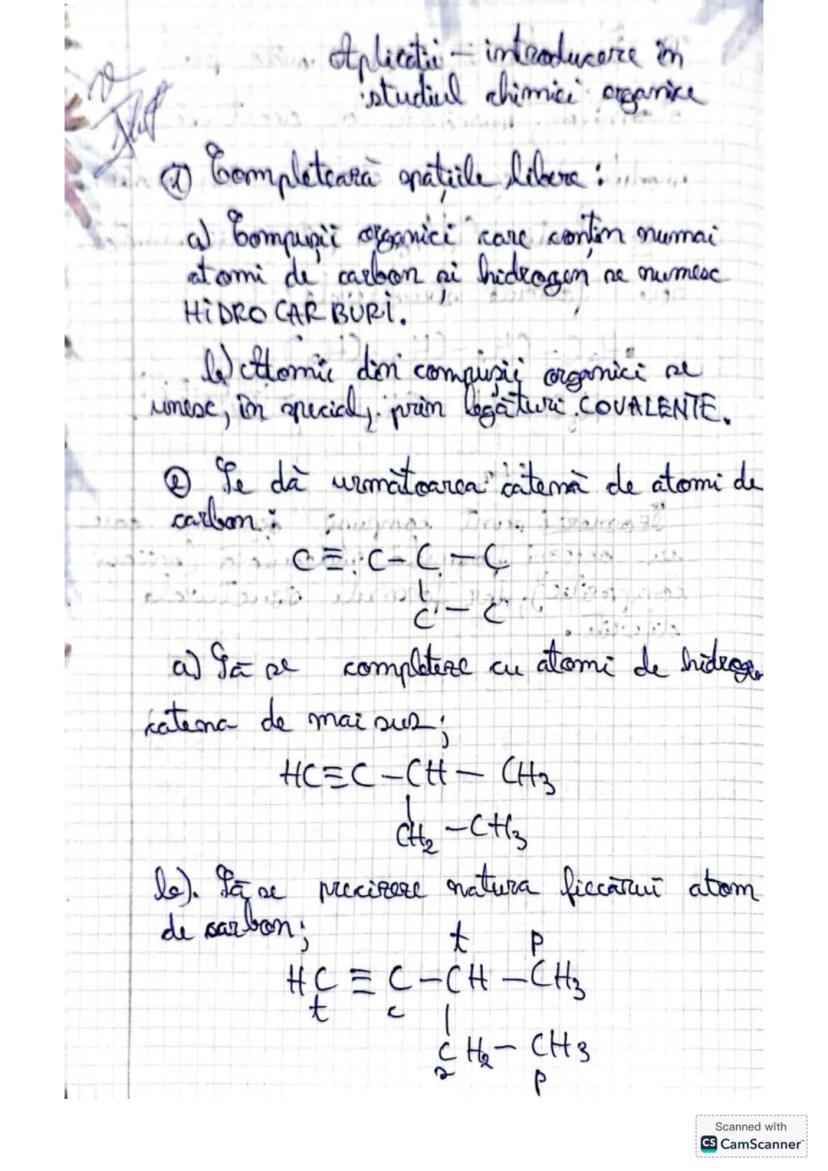 Aplicații – introducere în
studiul chimiei organice
① Completează spațiile libere :
a) Compușii organici care conțin numai
atomi de carbon și hidrogen se numesc
HIDROCARBURI.
b) Atomii din compușii organici se
unesc, în special, prin legături COVALENTE.
② Se dă următoarea catenă de atomi de
carbon :
C ≡ C – C – C
|
C – C
a) Să se completeze cu atomi de hidrog.
catena de mai sus ;
HC ≡ C – CH – CH3
|
CH2 – CH3
b). Să se precizeze natura fiecărui atom
de carbon ;
t p
HC ≡ C – CH – CH3
t c |
CH2 – CH3
s p
Scanned with
CS CamScanner